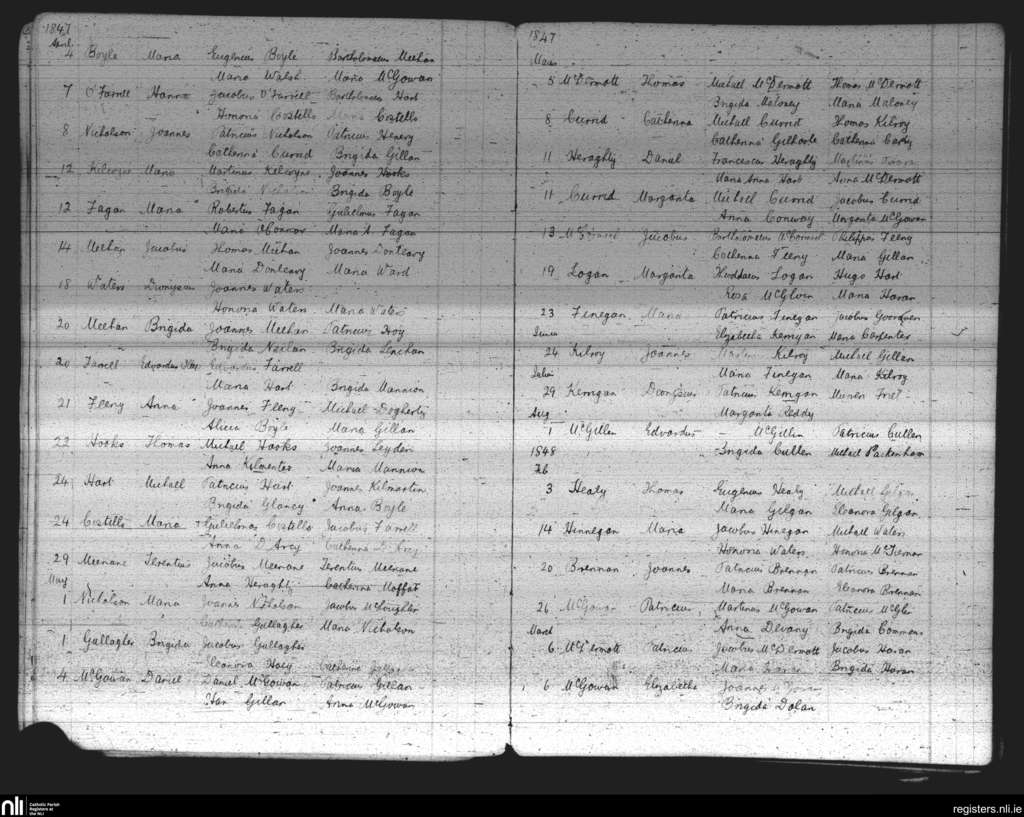 1847
April
4 Boyle Maria Eugenius Boyle Bartholomeus Meehan
Maria Walsh Maria McGowan
7 O'Farrell Hanna Jacobus O'Farrell Bartholomeus Hart
Honoria Costello Maria Costello
8 Nicholson Joannes Patricius Nicholson Patricius Henery
Catherina Currid Brigida Gillan
12 Kilcoyn Maria Martinus Kilcoyne Joannes Hooks
Brigida Brigida Boyle
12 Fagan Maria Robertus Fagan Gulielmus Fagan
Maria O'Connor Maria A Fagan
14 Meehan Jacobus Thomas Meehan Joannes Donleavy
Maria Donleavy Maria Ward
18 Waters Dionysius Joannes Waters
Honoria Waters Maria Waters
20 Meehan Brigida Joannes Meehan Patricius Hoy
Brigida Neilan Brigida Lenehan
20 Farrell Edvardus Edvardus Farrell
Maria Hart Brigida Mannion
21 Fleny Anna Joannes Fleny Michael Dogherty
Alicia Boyle Maria Gillan
22 Hooks Thomas Michael Hooks Joannes Leyden
Anna Kilmartin Maria Mannion
24 Hart Michael Patricius Hart Joannes Kilmartin
Brigida Glancy Anna Boyle
24 Costello Maria Gulielmus Costello Jacobus Farrell
Anna D'Arcy Catherina D'Arcy
29 Meenane Terentius Jacobus Meenane Terentius Meenane
May
Anna Heraghty Catherina Moffat
1 Nicholson Maria Joannes Nicholson Jacobus McLoughlin
Gallagher Maria Nicholson
1 Gallagher Brigida Jacobus Gallagher
Eleanora Hoey Catherina
4 McGowan Daniel Daniel McGowan Patricius Gillan
Han Gillan Anna McGowan
1847
Maii
5 McDermott Thomas Michael McDermott Thomas McDermott
Brigida Maloney Maria Maloney
8 Currid Catherina Michael Currid Thomas Kilroy
Catherina Gilharte Catherina Carty
11 Heraghty Daniel Franciscus Heraghty Martinus
Maria Anna Hart Anna McDermott
11 Currid Margarita Michael Currid Jacobus Currid
Anna Conway Margarita McGowan
13 Jacobus Bartholomeus Philippus Feeny
Catherina Feeny Maria Gillan
19 Logan Margarita Logan Hugo Hart
Rosa McGloin Maria Haran
23 Finegan Maria Patricius Finegan Jacobus
Junii Elizabetha Kerrigan Maria Carpenter
24 Kilroy Joannes Kilroy Michael Gillan
Julii Maria Finegan Maria Kilroy
29 Kerrigan Dionysius Patricius Kerrigan
Aug Margarita Reddy
1 McGillin Edvardus - McGillin Patricius Cullen
1848 Brigida Cullen Michael Packenham
Feb
3 Healy Thomas Eugenius Healy Michael Gilgan
Maria Gilgan Eleanora Gilgan
14 Hinnegan Maria Jacobus Hinegan Michael Waters
Honoria Waters Honoria McTiernan
20 Brennan Joannes Patricius Brennan Patricius Brennan
Maria Brennan Eleanora Brennan
26 McGowan Patricius Martinus McGowan Patricius
March Anna Devany Brigida Commons
6 McDermott Patricius Jacobus McDermott Jacobus Haran
Maria Brigida Haran
6 McGowan Elizabetha Joannes
Brigida Dolan
nli
Catholic Parish
Registers at
the NLI
registers.nli.ie